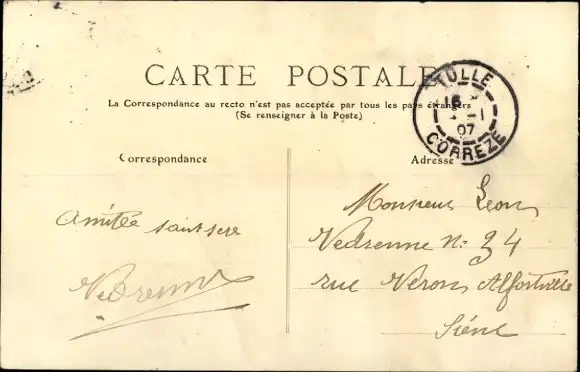 CARTE POSTALE
La Correspondance au recto n'est pas acceptée par tous les pays étrangers
(Se renseigner à la Poste)
TULLE
16
1
07
CORREZE
Correspondance
Adresse
Amitée saintsere
Vedrenne
Monsieur Leon
Vedrenne N: 34
rue Veron Alfortville
Siéne